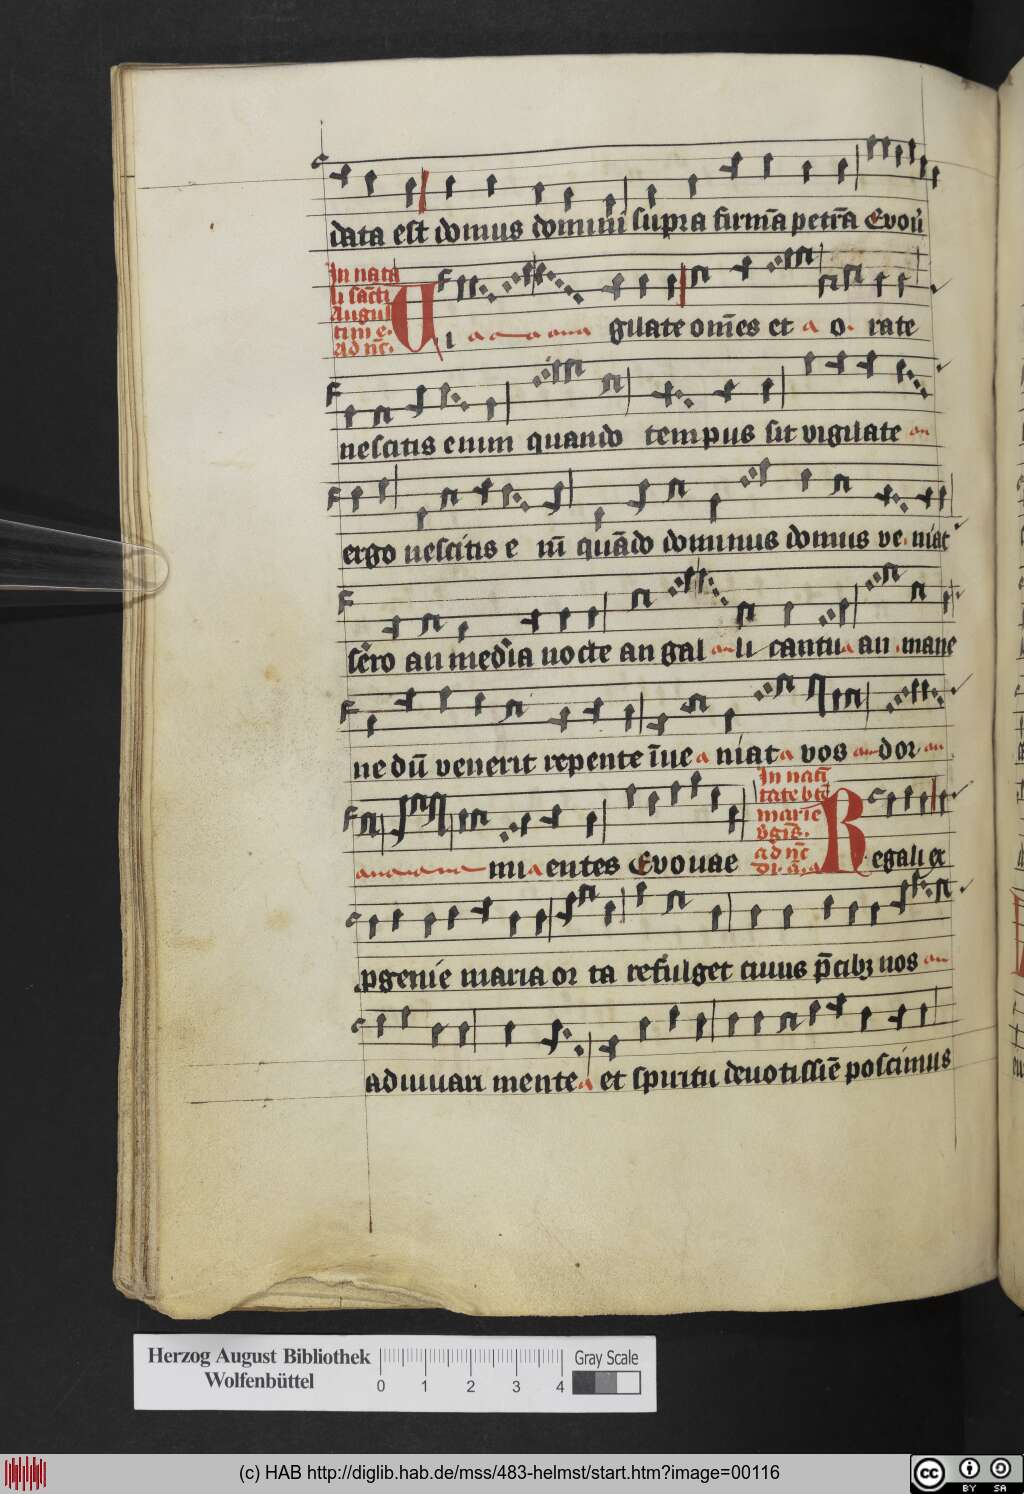 data est domus domini supra firmā petrā Evoū
In nata
li sācti
Augus
tini e.
ad nc̄.
Ui a-a-a-ana gilate om̄es et a o. rate
nescitis enim quando tempus sit vigilate an
ergo nescitis e nī quādo dominus domus ve. niat
sero an media nocte an gal an li cantu a an . mane
ne dū venerit repente īue a niat a vos an dor an
ana-a-ana mi a entes Evovae
In nati
tate btē
marie
v̄gīs.
ad nc̄
Regali ex
p̄genie maria or ta refulget cuius p̄cibꝫ nos an
adiuuari mente a et spiritu deuotissīē poscimus
Herzog August Bibliothek
Wolfenbüttel
0 1 2 3 4
Gray Scale
(c) HAB http://diglib.hab.de/mss/483-helmst/start.htm?image=00116
cc BY SA